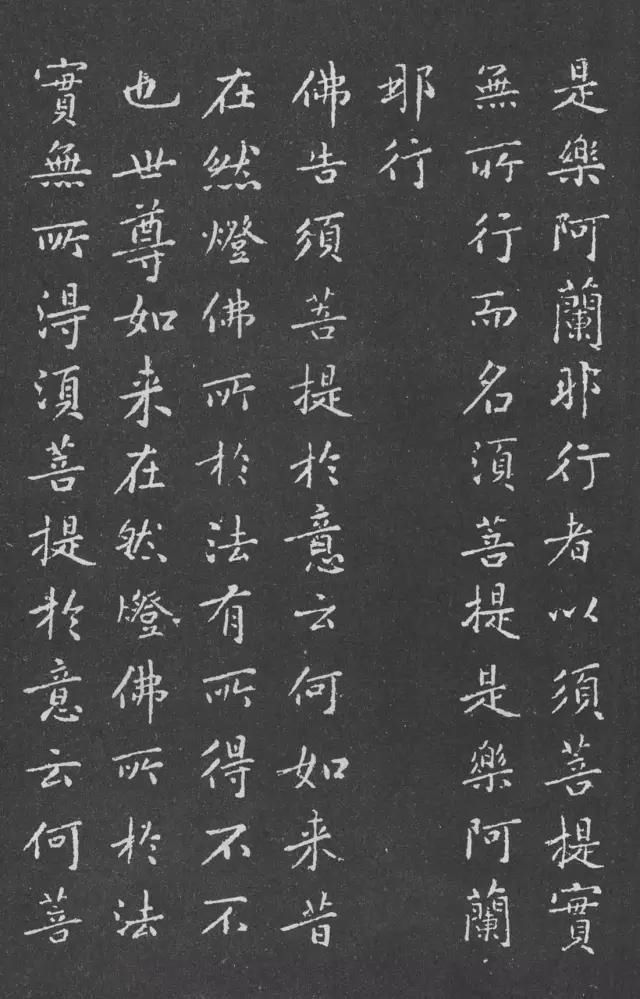 是樂阿蘭耶行者以須菩提實
無所行而名須菩提是樂阿蘭
耶行
佛告須菩提於意云何如来昔
在然燈佛所於法有所得不不
也世尊如来在然燈佛所於法
實無所得須菩提於意云何菩